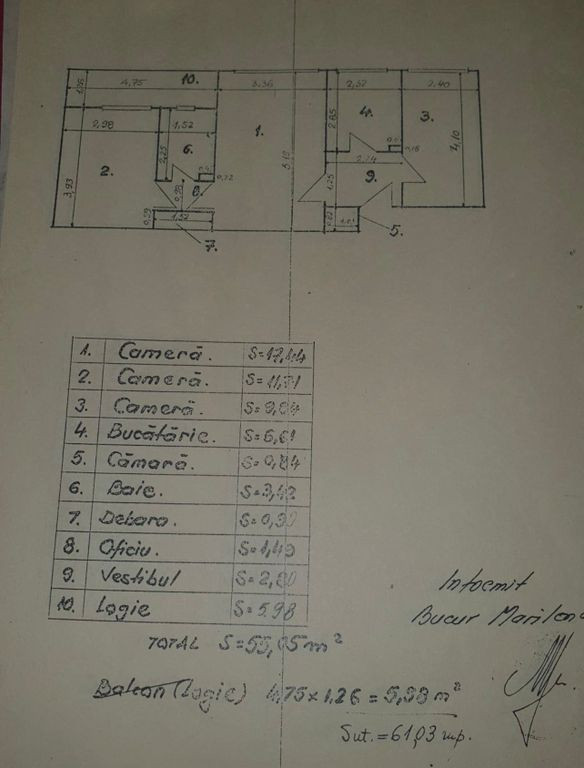 4,75 10. 3,36 2,57 2,40
1,26
2,98 1,52 1. 2,65 4. 3.
2. 2,25 6. 5,19 4,10
0,72 2,24 0,16
3,93 0,98 8. 1,25 9.
0,59 1,52 0,82
7. 5.
1. Cameră. S=17,44
2. Cameră. S=11,71
3. Cameră. S=9,84
4. Bucătărie. S=6,61
5. Cămară. S=0,84
6. Baie. S=3,42
7. Debara. S=0,90
8. Oficiu. S=1,49
9. Vestibul S=2,80
10. Logie S=5,98
TOTAL S=55,05 m²
Balcon (Logie) 4,75 x 1,26 = 5,98 m²
Sut.=61,03 mp.
Intocmit
Bucur Marilena